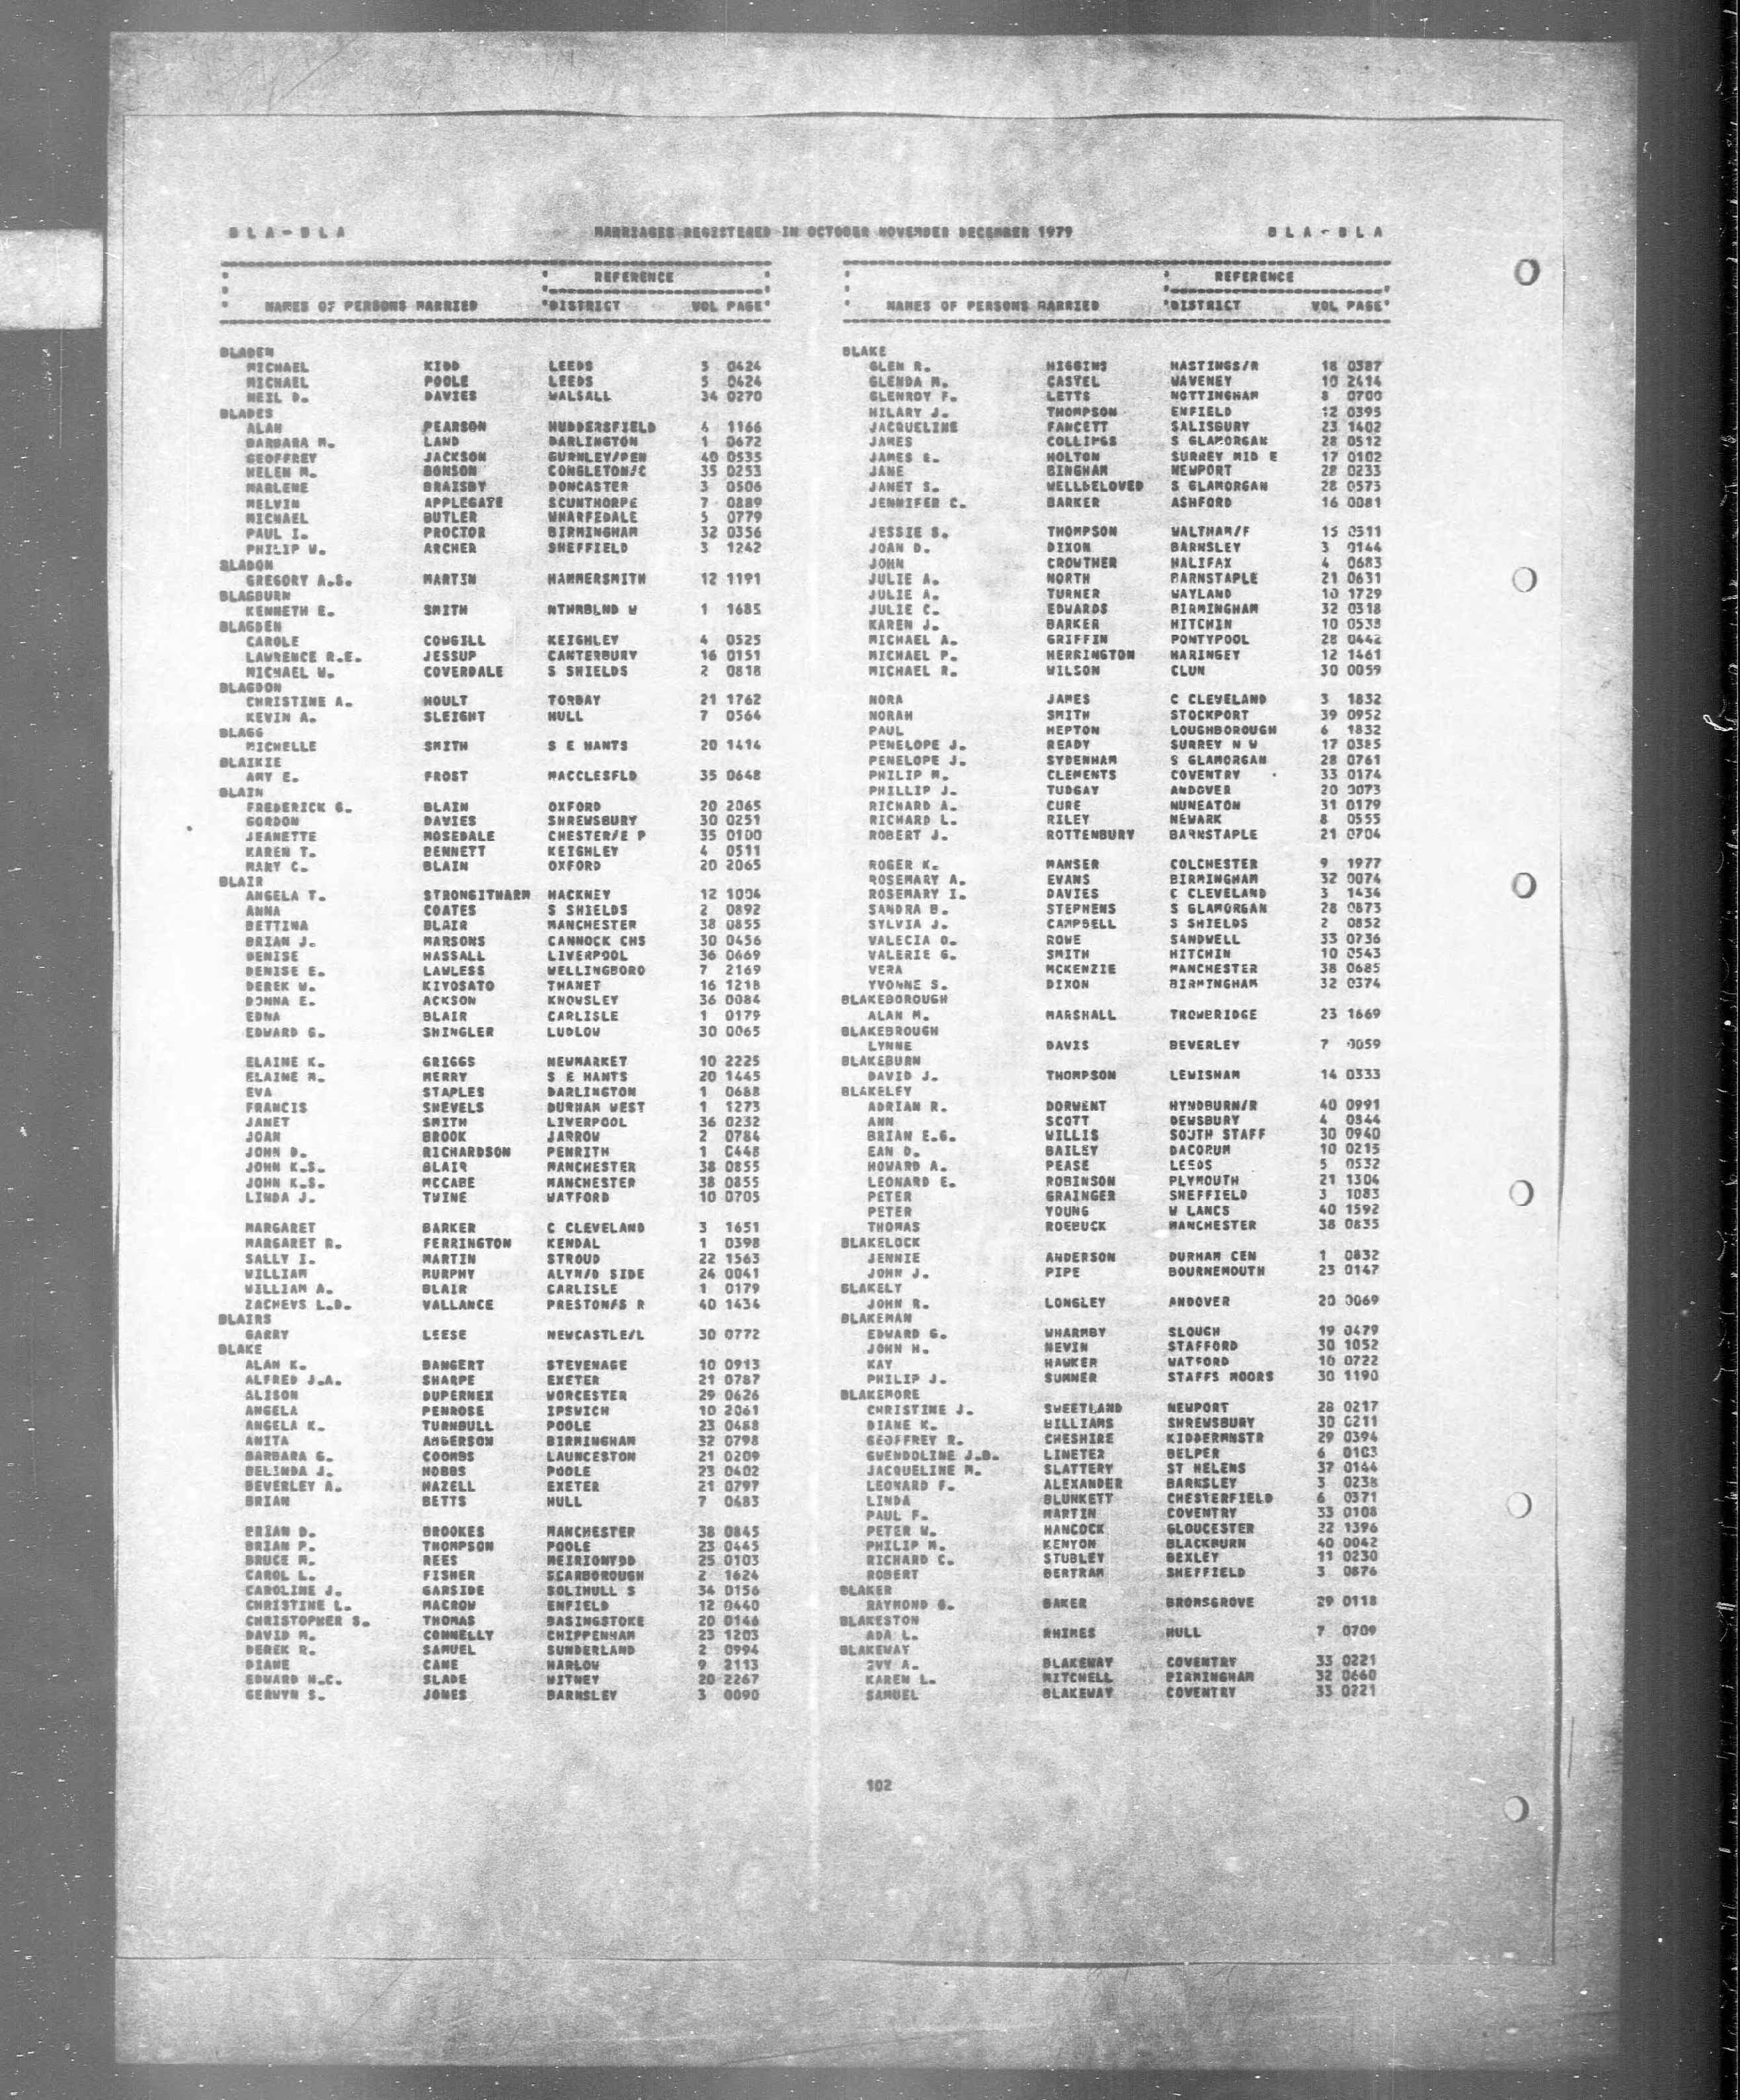 BLA-BLA MARRIAGES REGISTERED IN OCTOBER NOVEMBER DECEMBER 1979 BLA-BLA
REFERENCE
NAMES OF PERSONS MARRIED DISTRICT VOL PAGE
BLADEN
MICHAEL KIDD LEEDS 5 0424
MICHAEL POOLE LEEDS 5 0424
NEIL D. DAVIES WALSALL 34 0270
BLADES
ALAN PEARSON HUDDERSFIELD 4 1166
BARBARA M. LAND DARLINGTON 1 0672
GEOFFREY JACKSON BURNLEY/PEN 40 0535
HELEN M. BONSON CONGLETON/C 35 0253
MARLENE BRAISBY DONCASTER 3 0506
MELVIN APPLEGATE SCUNTHORPE 7 0889
MICHAEL BUTLER WHARFEDALE 5 0779
PAUL I. PROCTOR BIRMINGHAM 32 0356
PHILIP W. ARCHER SHEFFIELD 3 1242
BLADON
GREGORY A.S. MARTIN HAMMERSMITH 12 1191
BLAGBURN
KENNETH E. SMITH NTHMBLND W 1 1685
BLAGDEN
CAROLE COWGILL KEIGHLEY 4 0525
LAWRENCE R.E. JESSUP CANTERBURY 16 0151
MICHAEL W. COVERDALE S SHIELDS 2 0818
BLAGDON
CHRISTINE A. HOULT TORBAY 21 1762
KEVIN A. SLEIGHT HULL 7 0564
BLAGG
MICHELLE SMITH S E HANTS 20 1414
BLAIKIE
AMY E. FROST MACCLESFLD 35 0648
BLAIN
FREDERICK G. BLAIN OXFORD 20 2065
GORDON DAVIES SHREWSBURY 30 0251
JEANETTE MOSEDALE CHESTER/E P 35 0100
KAREN T. BENNETT KEIGHLEY 4 0511
MARY C. BLAIN OXFORD 20 2065
BLAIR
ANGELA T. STRONGITHARM HACKNEY 12 1004
ANNA COATES S SHIELDS 2 0892
BETTINA BLAIR MANCHESTER 38 0855
BRIAN J. MARSONS CANNOCK CHS 30 0456
DENISE HASSALL LIVERPOOL 36 0669
DENISE E. LAWLESS WELLINGBORO 7 2169
DEREK W. KIYOSATO THANET 16 1218
DONNA E. ACKSON KNOWSLEY 36 0084
EDNA BLAIR CARLISLE 1 0179
EDWARD G. SHINGLER LUDLOW 30 0065
ELAINE K. GRIGGS NEWMARKET 10 2225
ELAINE M. MERRY S E HANTS 20 1445
EVA STAPLES DARLINGTON 1 0688
FRANCIS SHEVELS DURHAM WEST 1 1273
JANET SMITH LIVERPOOL 36 0232
JOAN BROOK JARROW 2 0784
JOHN D. RICHARDSON PENRITH 1 0448
JOHN K.S. BLAIR MANCHESTER 38 0855
JOHN K.S. MCCABE MANCHESTER 38 0855
LINDA J. TWINE WATFORD 10 0705
MARGARET BARKER C CLEVELAND 3 1651
MARGARET R. FERRINGTON KENDAL 1 0398
SALLY I. MARTIN STROUD 22 1563
WILLIAM MURPHY ALYN/D SIDE 24 0041
WILLIAM A. BLAIR CARLISLE 1 0179
ZACHEVS L.D. VALLANCE PRESTON/S R 40 1434
BLAIRS
GARRY LEESE NEWCASTLE/L 30 0772
BLAKE
ALAN K. BANGERT STEVENAGE 10 0913
ALFRED J.A. SHARPE EXETER 21 0787
ALISON DUPERNEX WORCESTER 29 0626
ANGELA PENROSE IPSWICH 10 2061
ANGELA K. TURNBULL POOLE 23 0488
ANITA ANDERSON BIRMINGHAM 32 0798
BARBARA G. COOMBS LAUNCESTON 21 0209
BELINDA J. HOBBS POOLE 23 0402
BEVERLEY A. HAZELL EXETER 21 0797
BRIAN BETTS HULL 7 0483
BRIAN D. BROOKES MANCHESTER 38 0845
BRIAN P. THOMPSON POOLE 23 0445
BRUCE M. REES MEIRIONYDD 25 0103
CAROL L. FISHER SCARBOROUGH 2 1624
CAROLINE J. GARSIDE SOLIHULL S 34 0156
CHRISTINE L. MACROW ENFIELD 12 0440
CHRISTOPHER S. THOMAS BASINGSTOKE 20 0146
DAVID M. CONNELLY CHIPPENHAM 23 1203
DEREK R. SAMUEL SUNDERLAND 2 0994
DIANE CANE HARLOW 9 2113
EDWARD H.C. SLADE WITNEY 20 2267
GERWYN S. JONES BARNSLEY 3 0090
REFERENCE
NAMES OF PERSONS MARRIED DISTRICT VOL PAGE
BLAKE
GLEN R. HIGGINS HASTINGS/R 18 0387
GLENDA M. CASTEL WAVENEY 10 2414
GLENROY F. LETTS NOTTINGHAM 8 0700
HILARY J. THOMPSON ENFIELD 12 0395
JACQUELINE FANCETT SALISBURY 23 1402
JAMES COLLINGS S GLAMORGAN 28 0512
JAMES E. HOLTON SURREY MID E 17 0102
JANE BINGHAM NEWPORT 28 0233
JANET S. WELLBELOVED S GLAMORGAN 28 0573
JENNIFER C. BARKER ASHFORD 16 0081
JESSIE S. THOMPSON WALTHAM/F 15 0511
JOAN D. DIXON BARNSLEY 3 0144
JOHN CROWTHER HALIFAX 4 0683
JULIE A. NORTH BARNSTAPLE 21 0631
JULIE A. TURNER WAYLAND 10 1729
JULIE C. EDWARDS BIRMINGHAM 32 0318
KAREN J. BARKER HITCHIN 10 0538
MICHAEL A. GRIFFIN PONTYPOOL 28 0442
MICHAEL P. HERRINGTON HARINGEY 12 1461
MICHAEL R. WILSON CLUN 30 0059
NORA JAMES C CLEVELAND 3 1832
NORAH SMITH STOCKPORT 39 0952
PAUL HEPTON LOUGHBOROUGH 6 1832
PENELOPE J. READY SURREY N W 17 0385
PENELOPE J. SYDENHAM S GLAMORGAN 28 0761
PHILIP M. CLEMENTS COVENTRY 33 0174
PHILLIP J. TUDGAY ANDOVER 20 0073
RICHARD A. CURE NUNEATON 31 0179
RICHARD L. RILEY NEWARK 8 0555
ROBERT J. ROTTENBURY BARNSTAPLE 21 0704
ROGER K. MANSER COLCHESTER 9 1977
ROSEMARY A. EVANS BIRMINGHAM 32 0074
ROSEMARY I. DAVIES C CLEVELAND 3 1434
SANDRA B. STEPHENS S GLAMORGAN 28 0873
SYLVIA J. CAMPBELL S SHIELDS 2 0852
VALECIA O. ROWE SANDWELL 33 0736
VALERIE G. SMITH HITCHIN 10 0543
VERA MCKENZIE MANCHESTER 38 0685
YVONNE S. DIXON BIRMINGHAM 32 0374
BLAKEBOROUGH
ALAN M. MARSHALL TROWBRIDGE 23 1669
BLAKEBROUGH
LYNNE DAVIS BEVERLEY 7 0059
BLAKEBURN
DAVID J. THOMPSON LEWISHAM 14 0333
BLAKELEY
ADRIAN R. DORWENT HYNDBURN/R 40 0991
ANN SCOTT DEWSBURY 4 0344
BRIAN E.G. WILLIS SOUTH STAFF 30 0940
EAN D. BAILEY DACORUM 10 0215
HOWARD A. PEASE LEEDS 5 0532
LEONARD E. ROBINSON PLYMOUTH 21 1304
PETER GRAINGER SHEFFIELD 3 1083
PETER YOUNG W LANCS 40 1592
THOMAS ROEBUCK MANCHESTER 38 0835
BLAKELOCK
JENNIE ANDERSON DURHAM CEN 1 0832
JOHN J. PIPE BOURNEMOUTH 23 0147
BLAKELY
JOHN R. LONGLEY ANDOVER 20 0069
BLAKEMAN
EDWARD G. WHARMBY SLOUGH 19 0479
JOHN H. NEVIN STAFFORD 30 1052
KAY HAWKER WATFORD 10 0722
PHILIP J. SUMNER STAFFS MOORS 30 1190
BLAKEMORE
CHRISTINE J. SWEETLAND NEWPORT 28 0217
DIANE K. WILLIAMS SHREWSBURY 30 0211
GEOFFREY R. CHESHIRE KIDDERMNSTR 29 0394
GWENDOLINE J.D. LINETER BELPER 6 0103
JACQUELINE M. SLATTERY ST HELENS 37 0144
LEONARD F. ALEXANDER BARNSLEY 3 0238
LINDA BLUNKETT CHESTERFIELD 6 0371
PAUL F. MARTIN COVENTRY 33 0108
PETER W. HANCOCK GLOUCESTER 22 1396
PHILIP M. KENYON BLACKBURN 40 0042
RICHARD C. STUBLEY BEXLEY 11 0230
ROBERT BERTRAM SHEFFIELD 3 0876
BLAKER
RAYMOND G. BAKER BROMSGROVE 29 0118
BLAKESTON
ADA L. RHIMES HULL 7 0709
BLAKEWAY
IVY A. BLAKEWAY COVENTRY 33 0221
KAREN L. MITCHELL BIRMINGHAM 32 0660
SAMUEL BLAKEWAY COVENTRY 33 0221
102